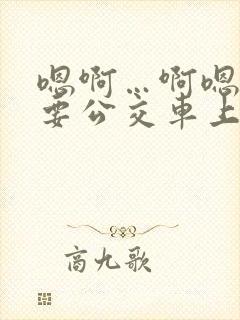 嗯啊…啊嗯
要公交车上
商九歌